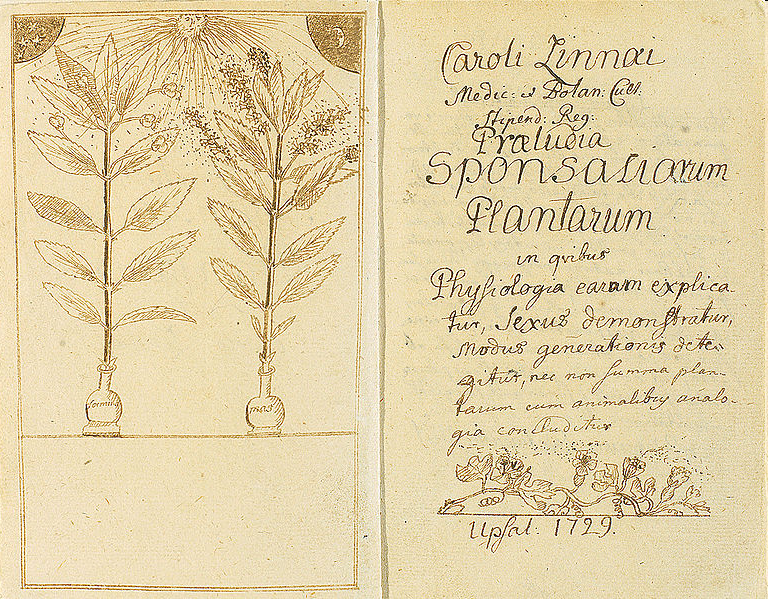 femina
mas
Caroli Linnæi
Medic: & Botan: Cult:
Stipend: Reg:
Præludia
Sponsaliorum
Plantarum
in qvibus
Physiologia earum explica-
tur, Sexus demonstratur,
Modus generationis dete-
gitur, nec non summa plan-
tarum cum animalibus analo-
gia concluditur
Upsal. 1729.